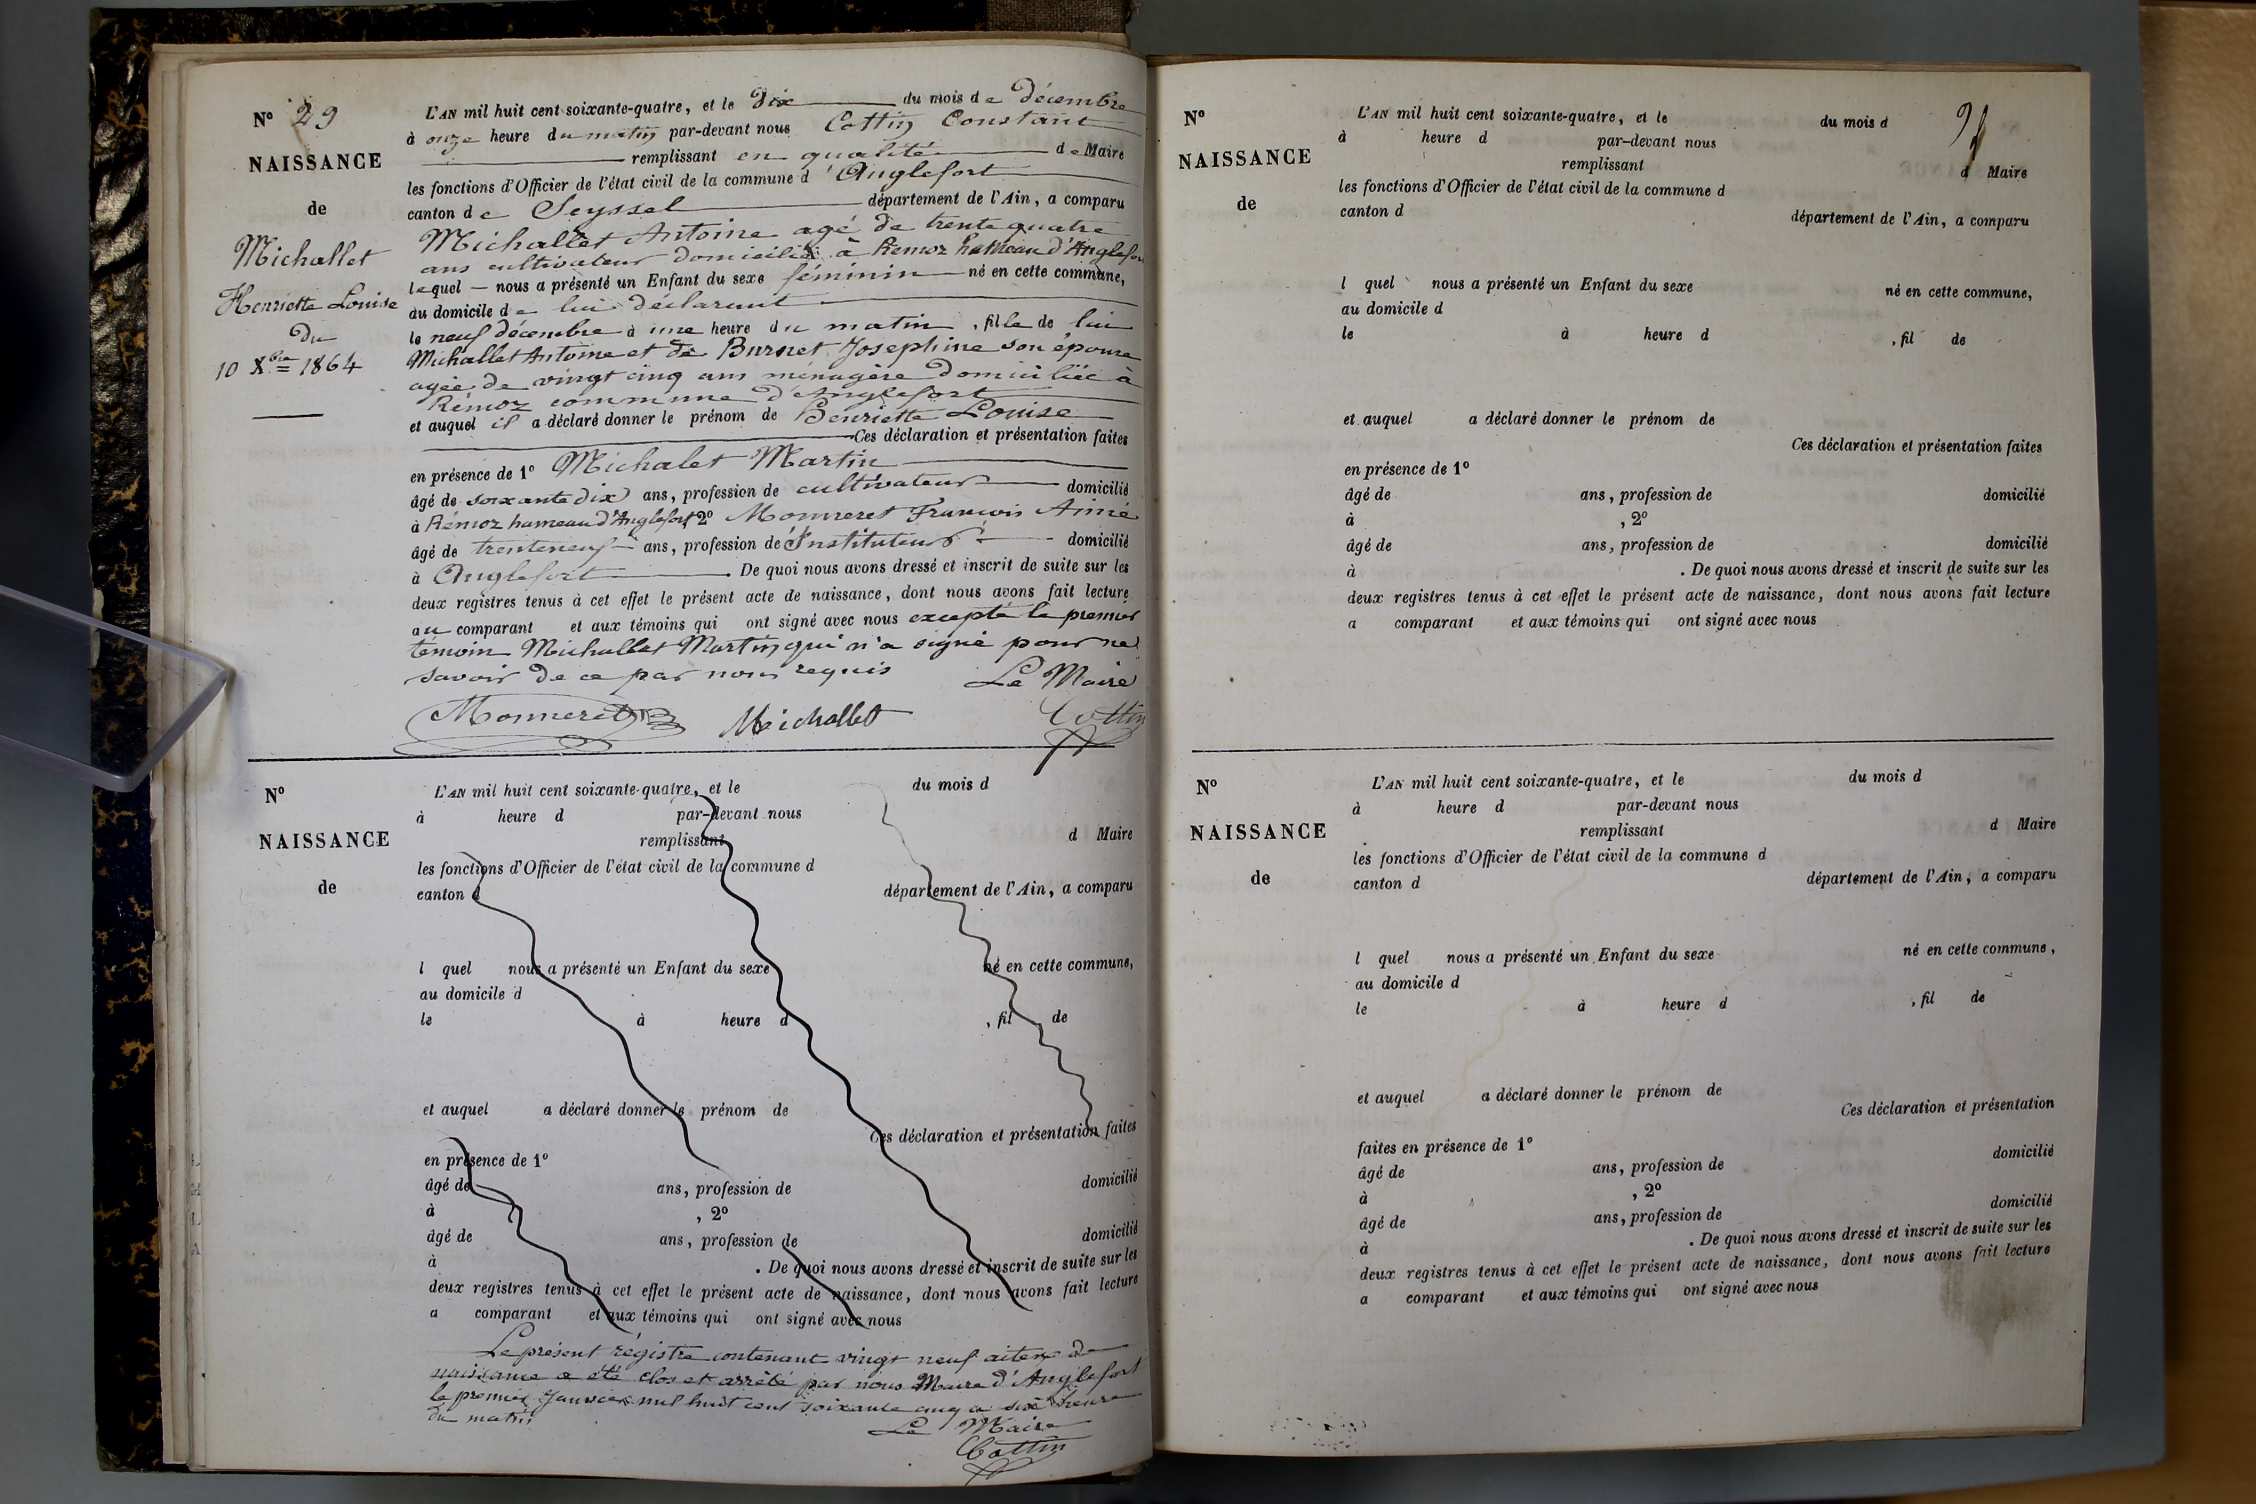 N° 29
NAISSANCE
de
Michallet
Henriette Louise
du
10 Xbre 1864
L'AN mil huit cent soixante-quatre, et le Dix du mois de décembre
à onze heure du matin par-devant nous Cottin Constant
remplissant en qualité de Maire
les fonctions d'Officier de l'état civil de la commune d'Anglefort
canton de Seyssel département de l'Ain, a comparu
Michallet Antoine agé de trente quatre
ans cultivateur domicilié à Remoz hameau d'Anglefort
lequel nous a présenté un Enfant du sexe féminin né en cette commune,
au domicile de lui déclarant
le neuf décembre à une heure du matin, fille de lui
Michallet Antoine et de Burnet Josephine son épouse
agée de vingt cinq ans ménagère domiciliée à
Rémoz commune d'Anglefort
et auquel il a déclaré donner le prénom de Henriette Louise
Ces déclaration et présentation faites
en présence de 1° Michalet Martin
âgé de soixante dix ans, profession de cultivateur domicilié
à Rémoz hameau d'Anglefort 2° Monneret François Aimé
âgé de trente neuf ans, profession de Instituteur domicilié
à Anglefort. De quoi nous avons dressé et inscrit de suite sur les
deux registres tenus à cet effet le présent acte de naissance, dont nous avons fait lecture
au comparant et aux témoins qui ont signé avec nous excepté le premier
témoin Michallet Martin qui n'a signé pour ne
savoir de ce par nous requis Le Maire
Monneret Michallet Cottin
N°
NAISSANCE
de
L'AN mil huit cent soixante-quatre, et le du mois d
à heure d par-devant nous
remplissant d Maire
les fonctions d'Officier de l'état civil de la commune d
canton d département de l'Ain, a comparu
l quel nous a présenté un Enfant du sexe né en cette commune,
au domicile d
le à heure d , fil de
et auquel a déclaré donner le prénom de
Ces déclaration et présentation faites
en présence de 1°
âgé de ans, profession de domicilié
à , 2°
âgé de ans, profession de domicilié
à . De quoi nous avons dressé et inscrit de suite sur les
deux registres tenus à cet effet le présent acte de naissance, dont nous avons fait lecture
a comparant et aux témoins qui ont signé avec nous
Le présent régistre contenant vingt neuf actes de
naissance a été clos et arrêté par nous Maire d'Anglefort
le premier Janvier mil huit cent soixante cinq a six heure
du matin
Le Maire
Cottin
N°
NAISSANCE
de
L'AN mil huit cent soixante-quatre, et le du mois d
à heure d par-devant nous
remplissant d Maire
les fonctions d'Officier de l'état civil de la commune d
canton d département de l'Ain, a comparu
l quel nous a présenté un Enfant du sexe né en cette commune,
au domicile d
le à heure d , fil de
et auquel a déclaré donner le prénom de
Ces déclaration et présentation faites
en présence de 1°
âgé de ans, profession de domicilié
à , 2°
âgé de ans, profession de domicilié
à . De quoi nous avons dressé et inscrit de suite sur les
deux registres tenus à cet effet le présent acte de naissance, dont nous avons fait lecture
a comparant et aux témoins qui ont signé avec nous
N°
NAISSANCE
de
L'AN mil huit cent soixante-quatre, et le du mois d
à heure d par-devant nous
remplissant d Maire
les fonctions d'Officier de l'état civil de la commune d
canton d département de l'Ain, a comparu
l quel nous a présenté un Enfant du sexe né en cette commune,
au domicile d
le à heure d , fil de
et auquel a déclaré donner le prénom de
Ces déclaration et présentation
faites en présence de 1°
âgé de ans, profession de domicilié
à , 2°
âgé de ans, profession de domicilié
à . De quoi nous avons dressé et inscrit de suite sur les
deux registres tenus à cet effet le présent acte de naissance, dont nous avons fait lecture
a comparant et aux témoins qui ont signé avec nous